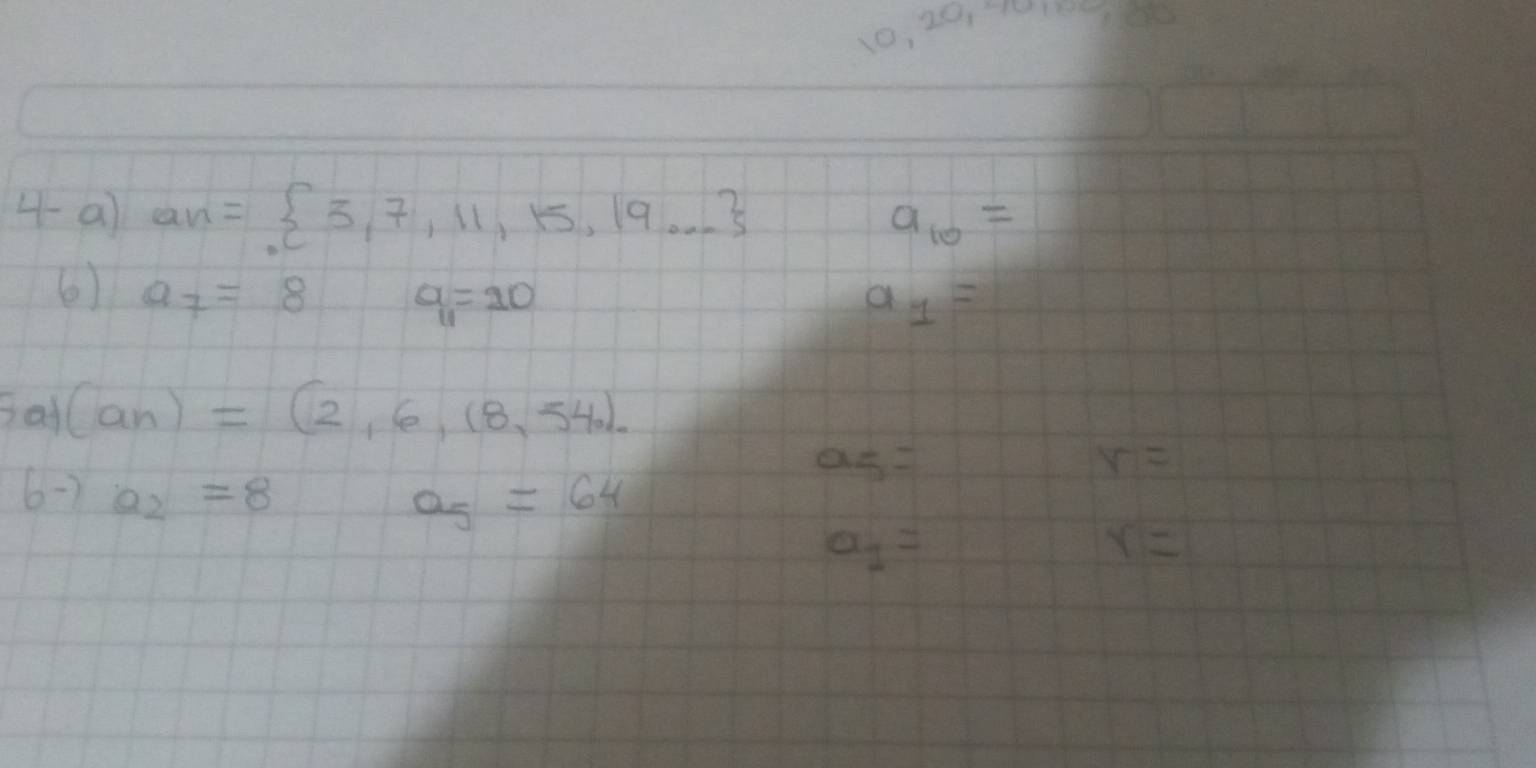 10, 20,
4- a) an = { 3, 7, 11, 15, 19 ... } a₁₀ =
b) a₇ = 8 a₁₁ = 20 a₁ =
5a) (an) = (2, 6, 18, 54..).
a₅ = r =
b-) a₂ = 8 a₅ = 64
a₁ = r =